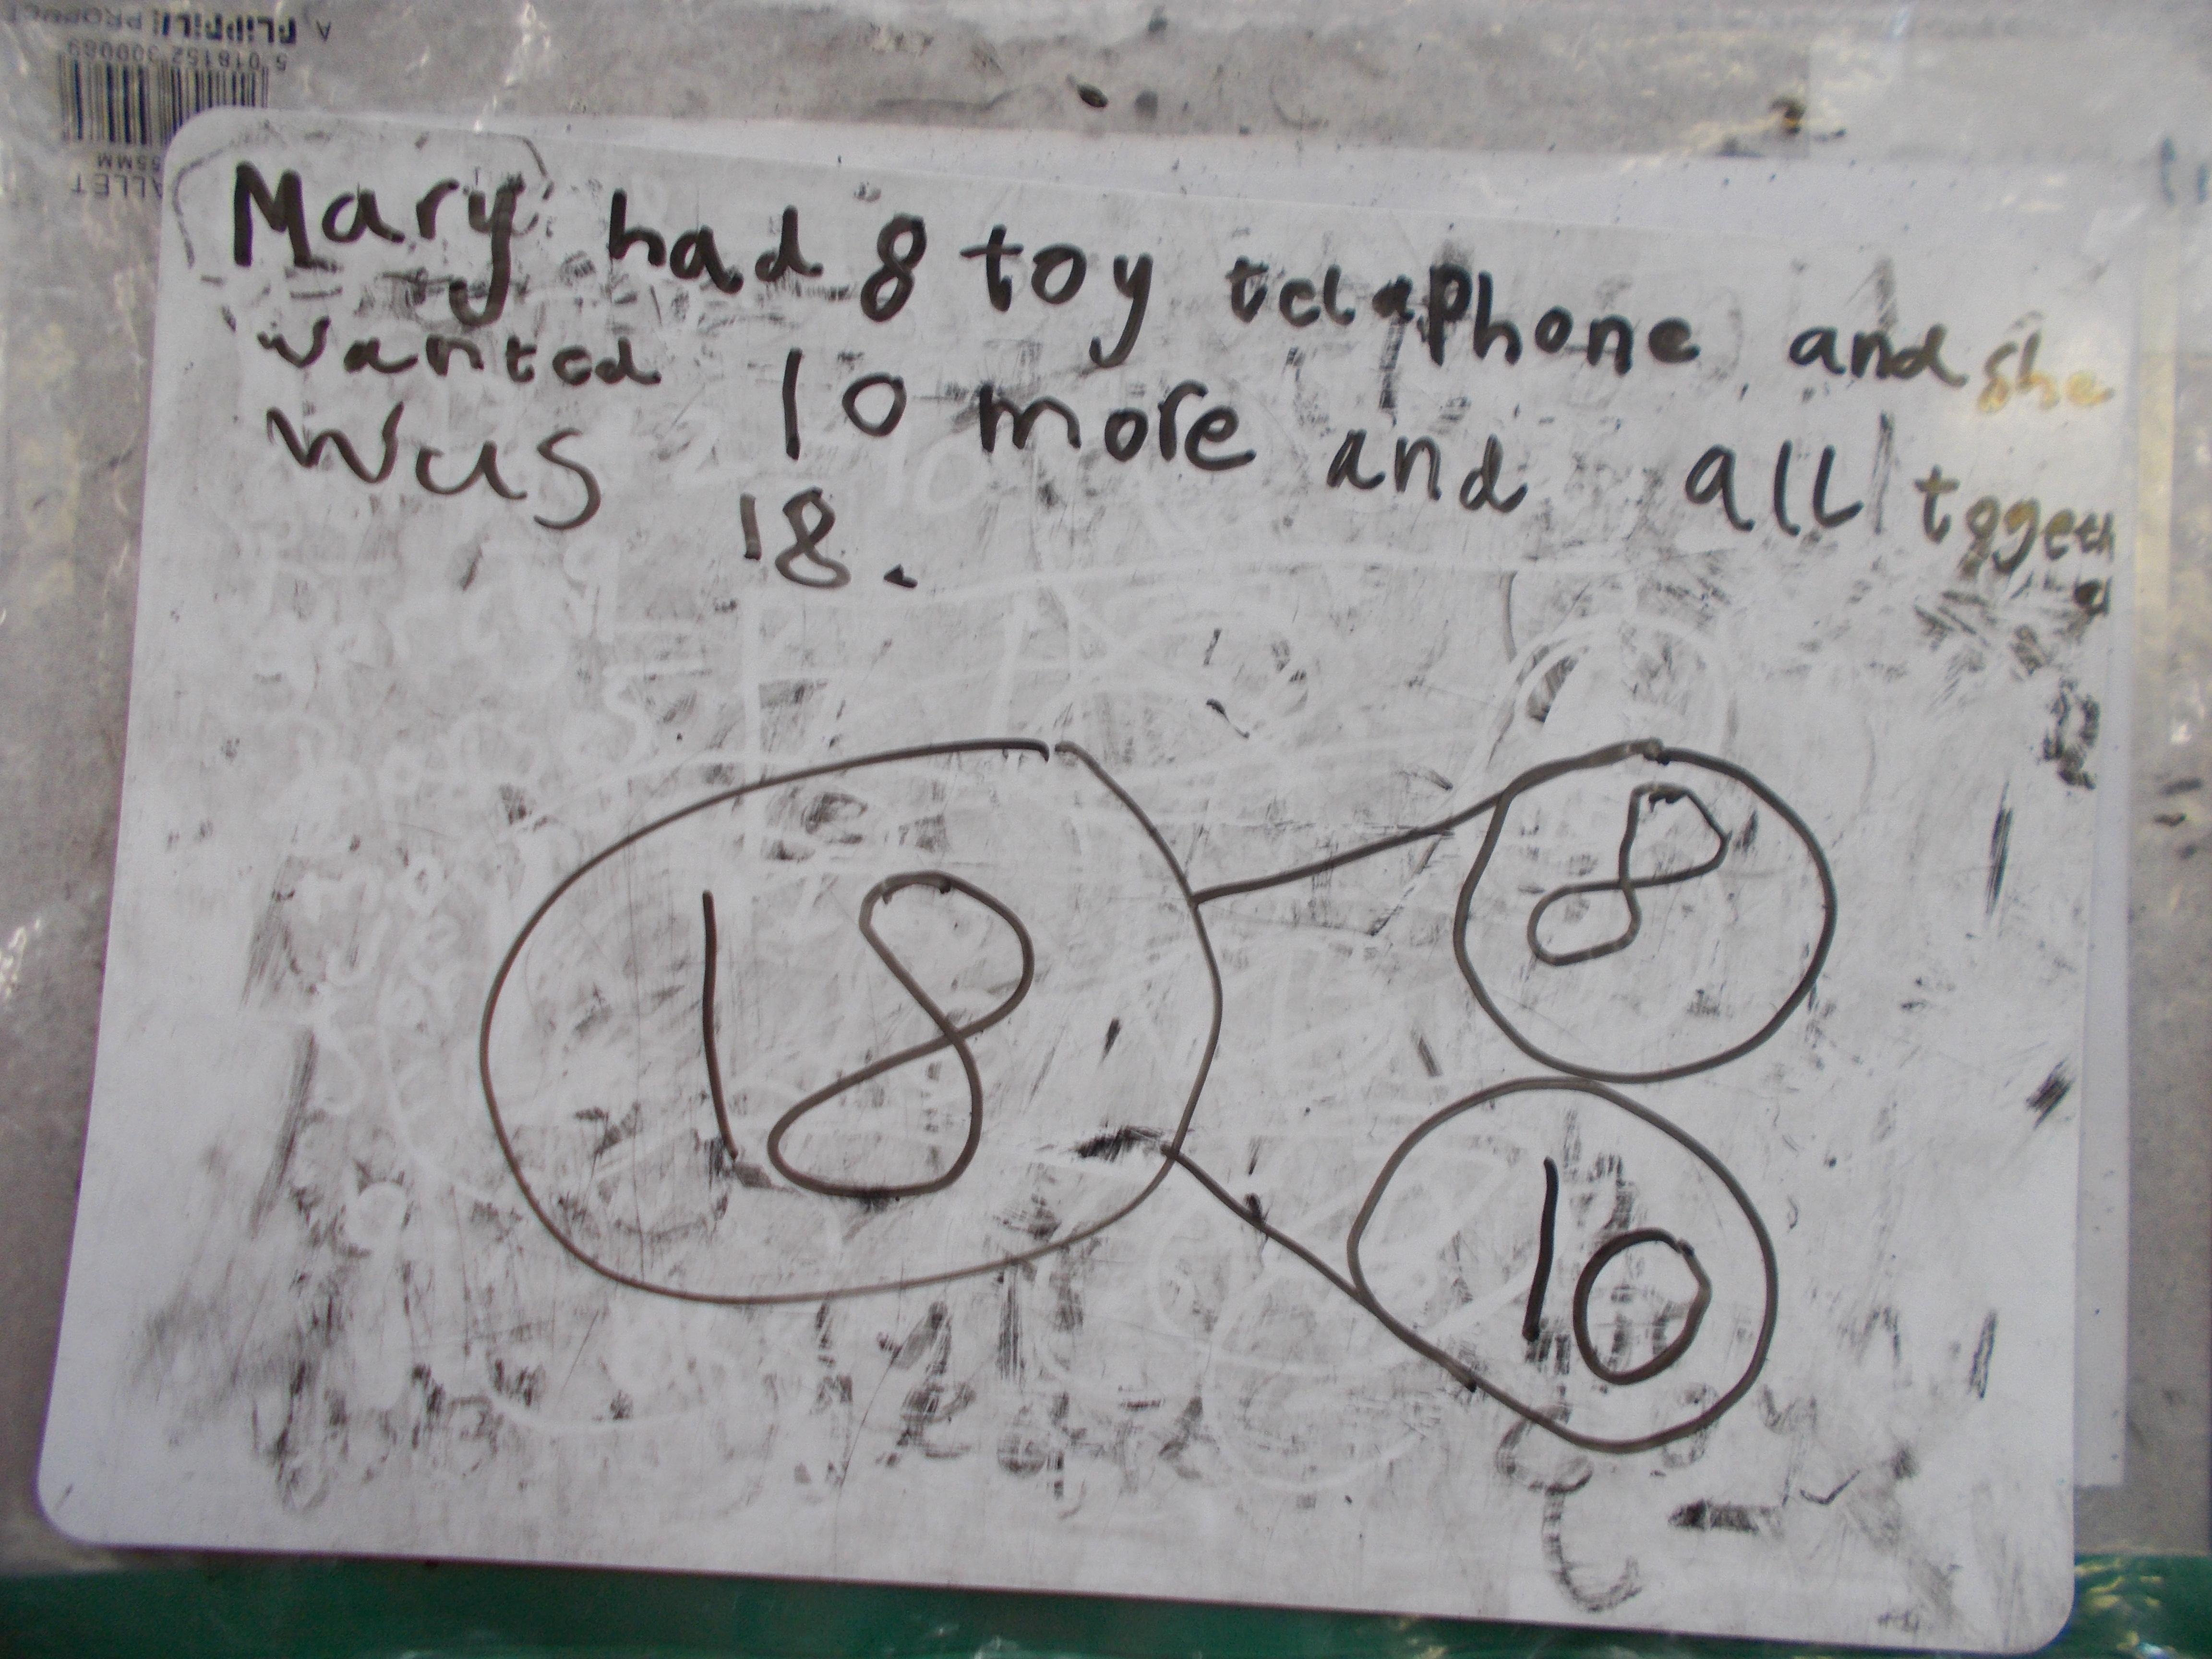 Mary had 8 toy telaphone and she
wanted 10 more and all togeth
was 18.
18
8
10
5 018152 300089